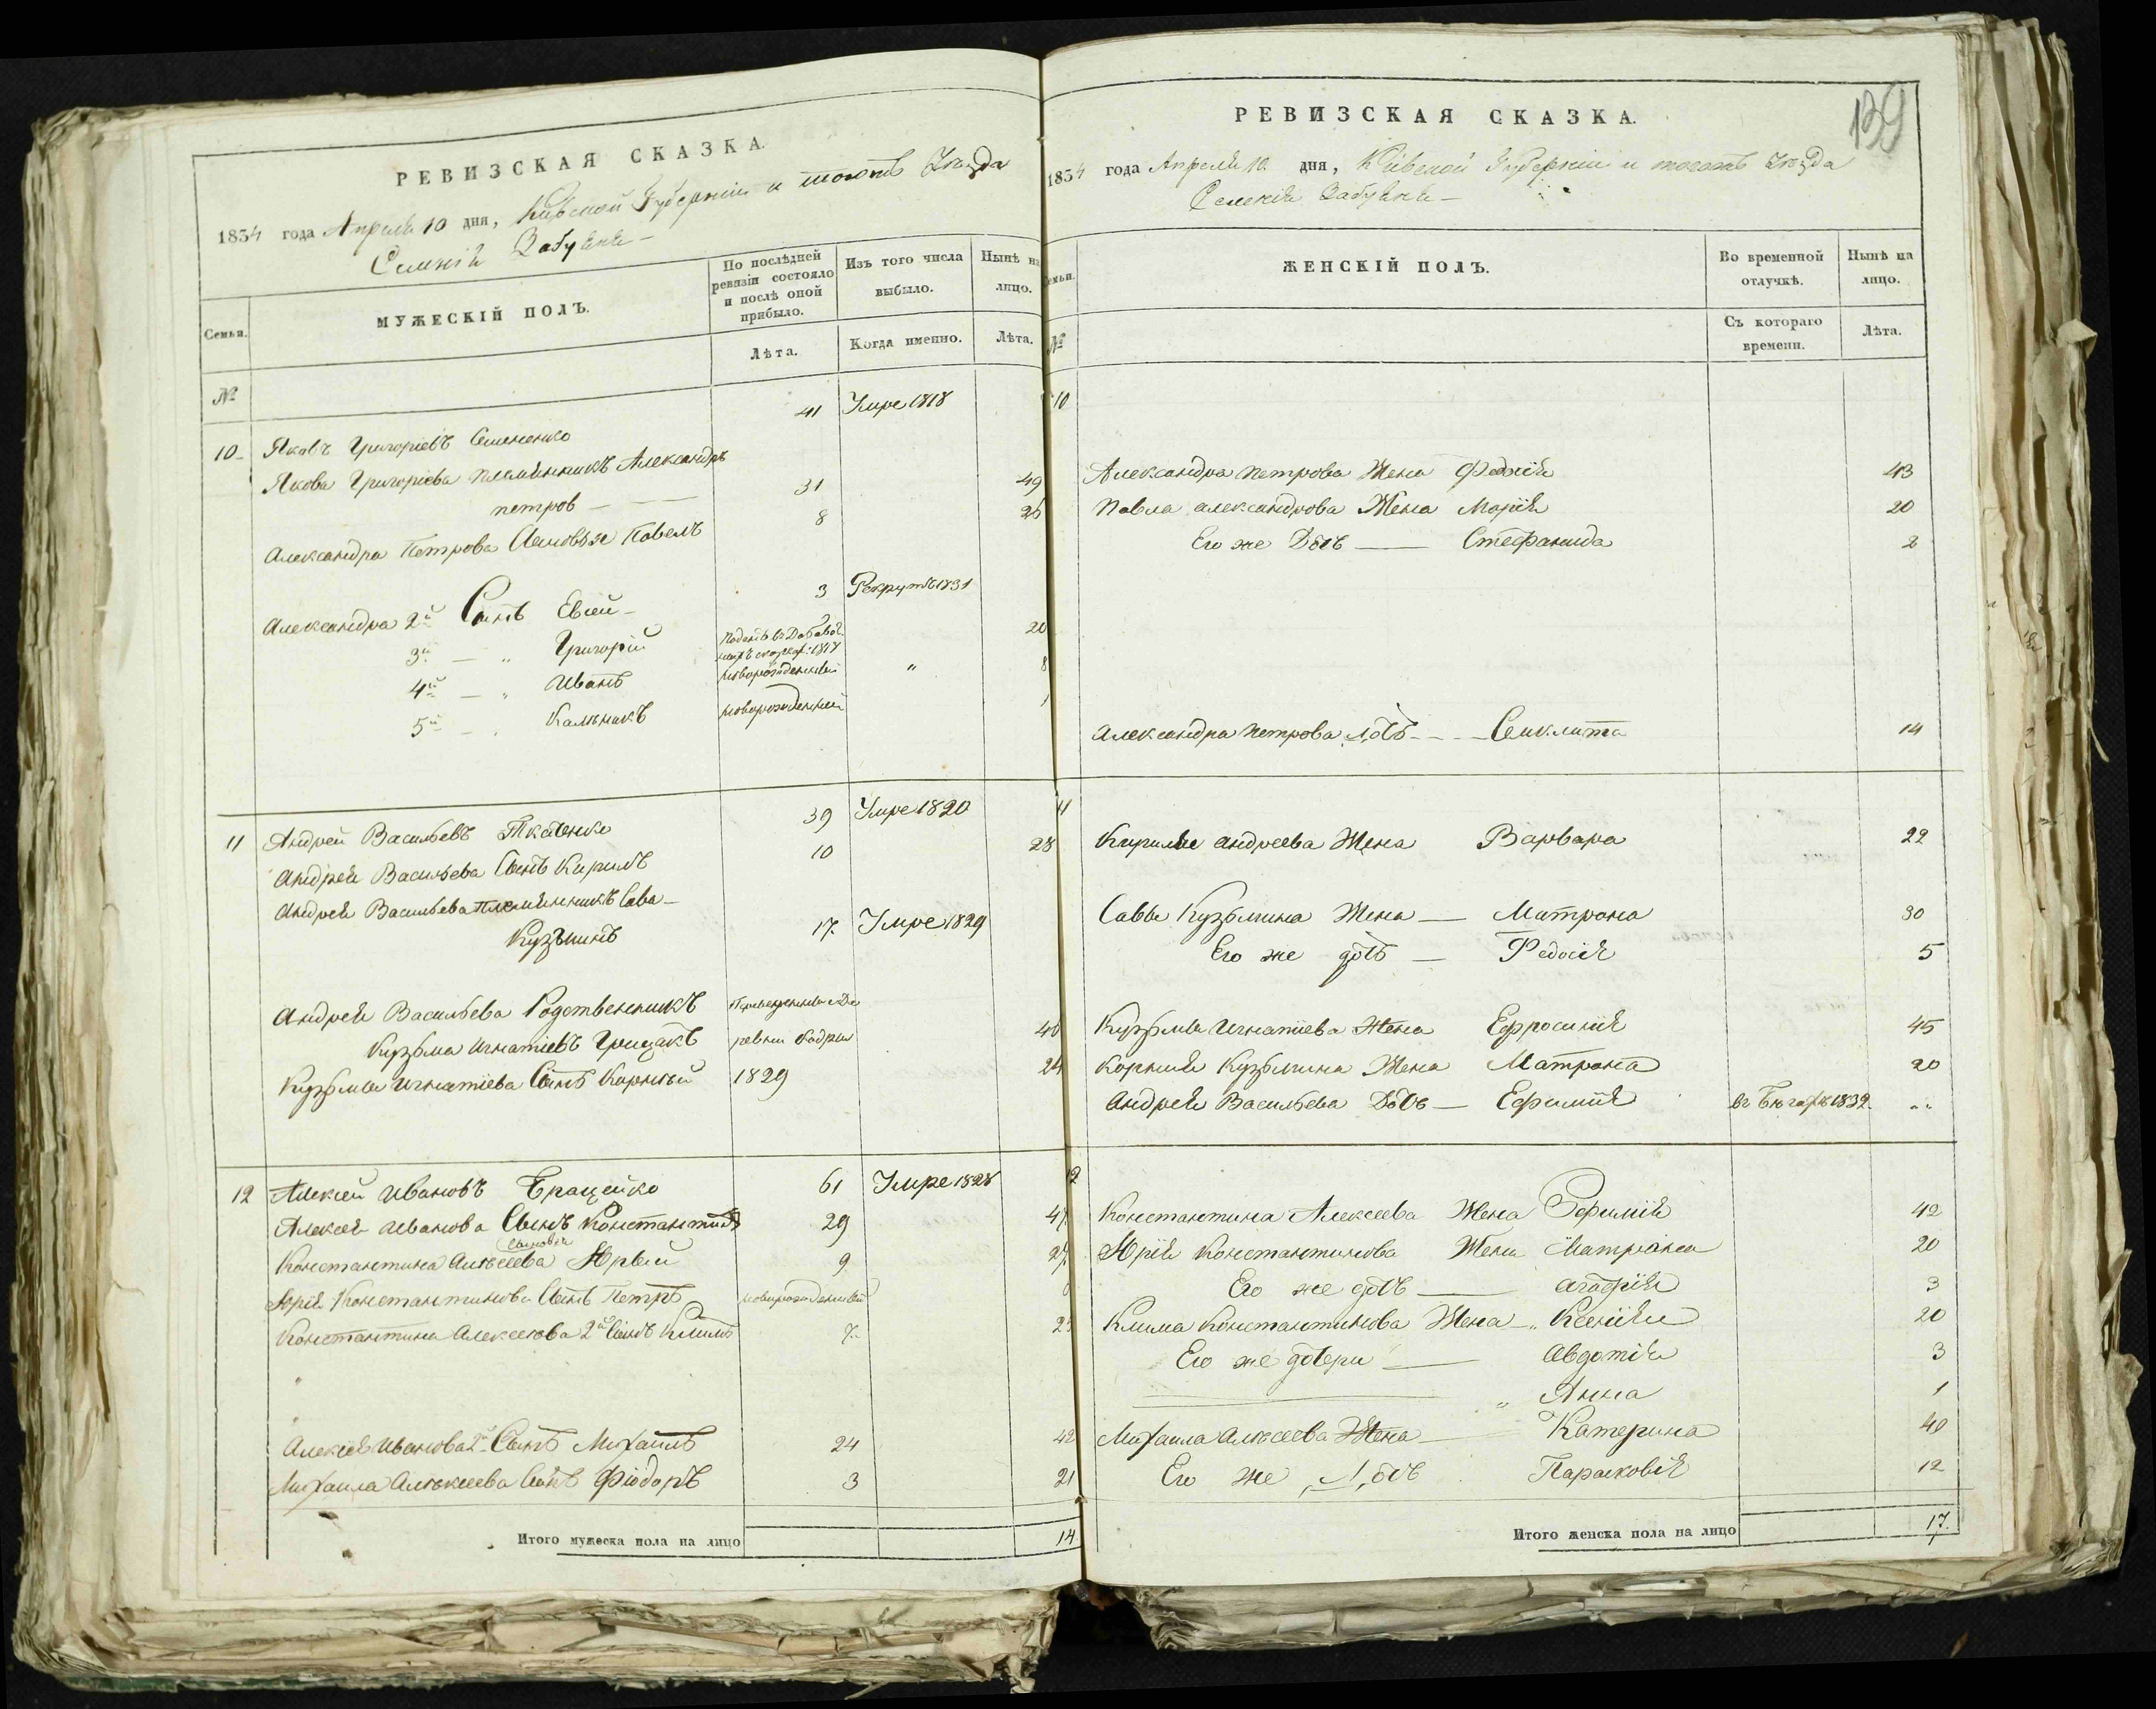 РЕВИЗСКАЯ СКАЗКА.
1834 года Апреля 10 дня, Киевской Губернии и тогожъ Уезда
По последней ревизіи состояло и после оной прибыло.
Изъ того числа выбыло.
Ныне на лицо.
Семьи.
МУЖЕСКІЙ ПОЛЪ.
Лѣта.
Когда именно.
Лѣта.
№
10 Яковъ Григоріевъ Семененко 41 Умре 1818
Якова Григоріева племянникъ Александръ
петров 31 49
Александра Петрова Сыновья Павелъ 8 26
Александра 2й Сынъ Евсей 3 Рекрутъ 1831
3й — „ Григорій 20
4й — „ Иванъ новорожденный „ 8
5й — „ новорожденный 1
11 Андрей Васильевъ Ткаченко 39 Умре 1820
Андрея Васильева Сынъ Кирилъ 10 28
Андрея Васильева племянникъ Сава
Кузьминъ 17. Умре 1829
Андрея Васильева Родственникъ
Кузьма Игнатіевъ Грицакъ 40
Кузьмы Игнатіева Сынъ Корнѣй 1829 24
12 Алексѣй Ивановъ Брацейко 61 Умре 1828
Алексея Иванова Сынъ Константинъ 29 47.
Константина Алексеева Сыновья Юрьи 9 27.
Юрія Константинова Сынъ Петръ новорожденный
Константина Алексеева 2й Сынъ Климъ 7. 25
Алексея Иванова 2й Сынъ Михаилъ 24 42
Михаила Алексеева Сынъ Фіодоръ 3 21
Итого мужеска пола на лицо 14
139
РЕВИЗСКАЯ СКАЗКА.
1834 года Апреля 10 дня, Кіевской Губерніи и тогожъ Уезда
Семьи.
ЖЕНСКІЙ ПОЛЪ.
Во временной отлучкѣ.
Нынѣ на лицо.
№
Съ котораго времени.
Лѣта.
10
Александра петрова Жена Федосія 43
Павла александрова Жена Марія 20
Его же Дочь — Стефанида 2
Александра петрова дочь — Секлита 14
11
Кирилы андреева Жена Варвара 22
Саввы Кузьмина Жена — Матрона 30
Его же дочь — Федосія 5
Кузьмы Игнатіева Жена Ефросинія 45
Корнія Кузьмина Жена Матрона 20
Андрея Васильева Дочь — Ефимія въ Бегахъ 1832
12
Константина Алексеева Жена Ефимія 42
Юрія Константинова Жена Матрона 20
Его же дочь — агафія 3
Клима Константинова Жена „ Ксенія 20
Его же дочери — Авдотія 3
„ Анна 1
Михаила Алексеева Жена — Катерина 40
Его же дочь Парасковія 12
Итого женска пола на лицо 17.